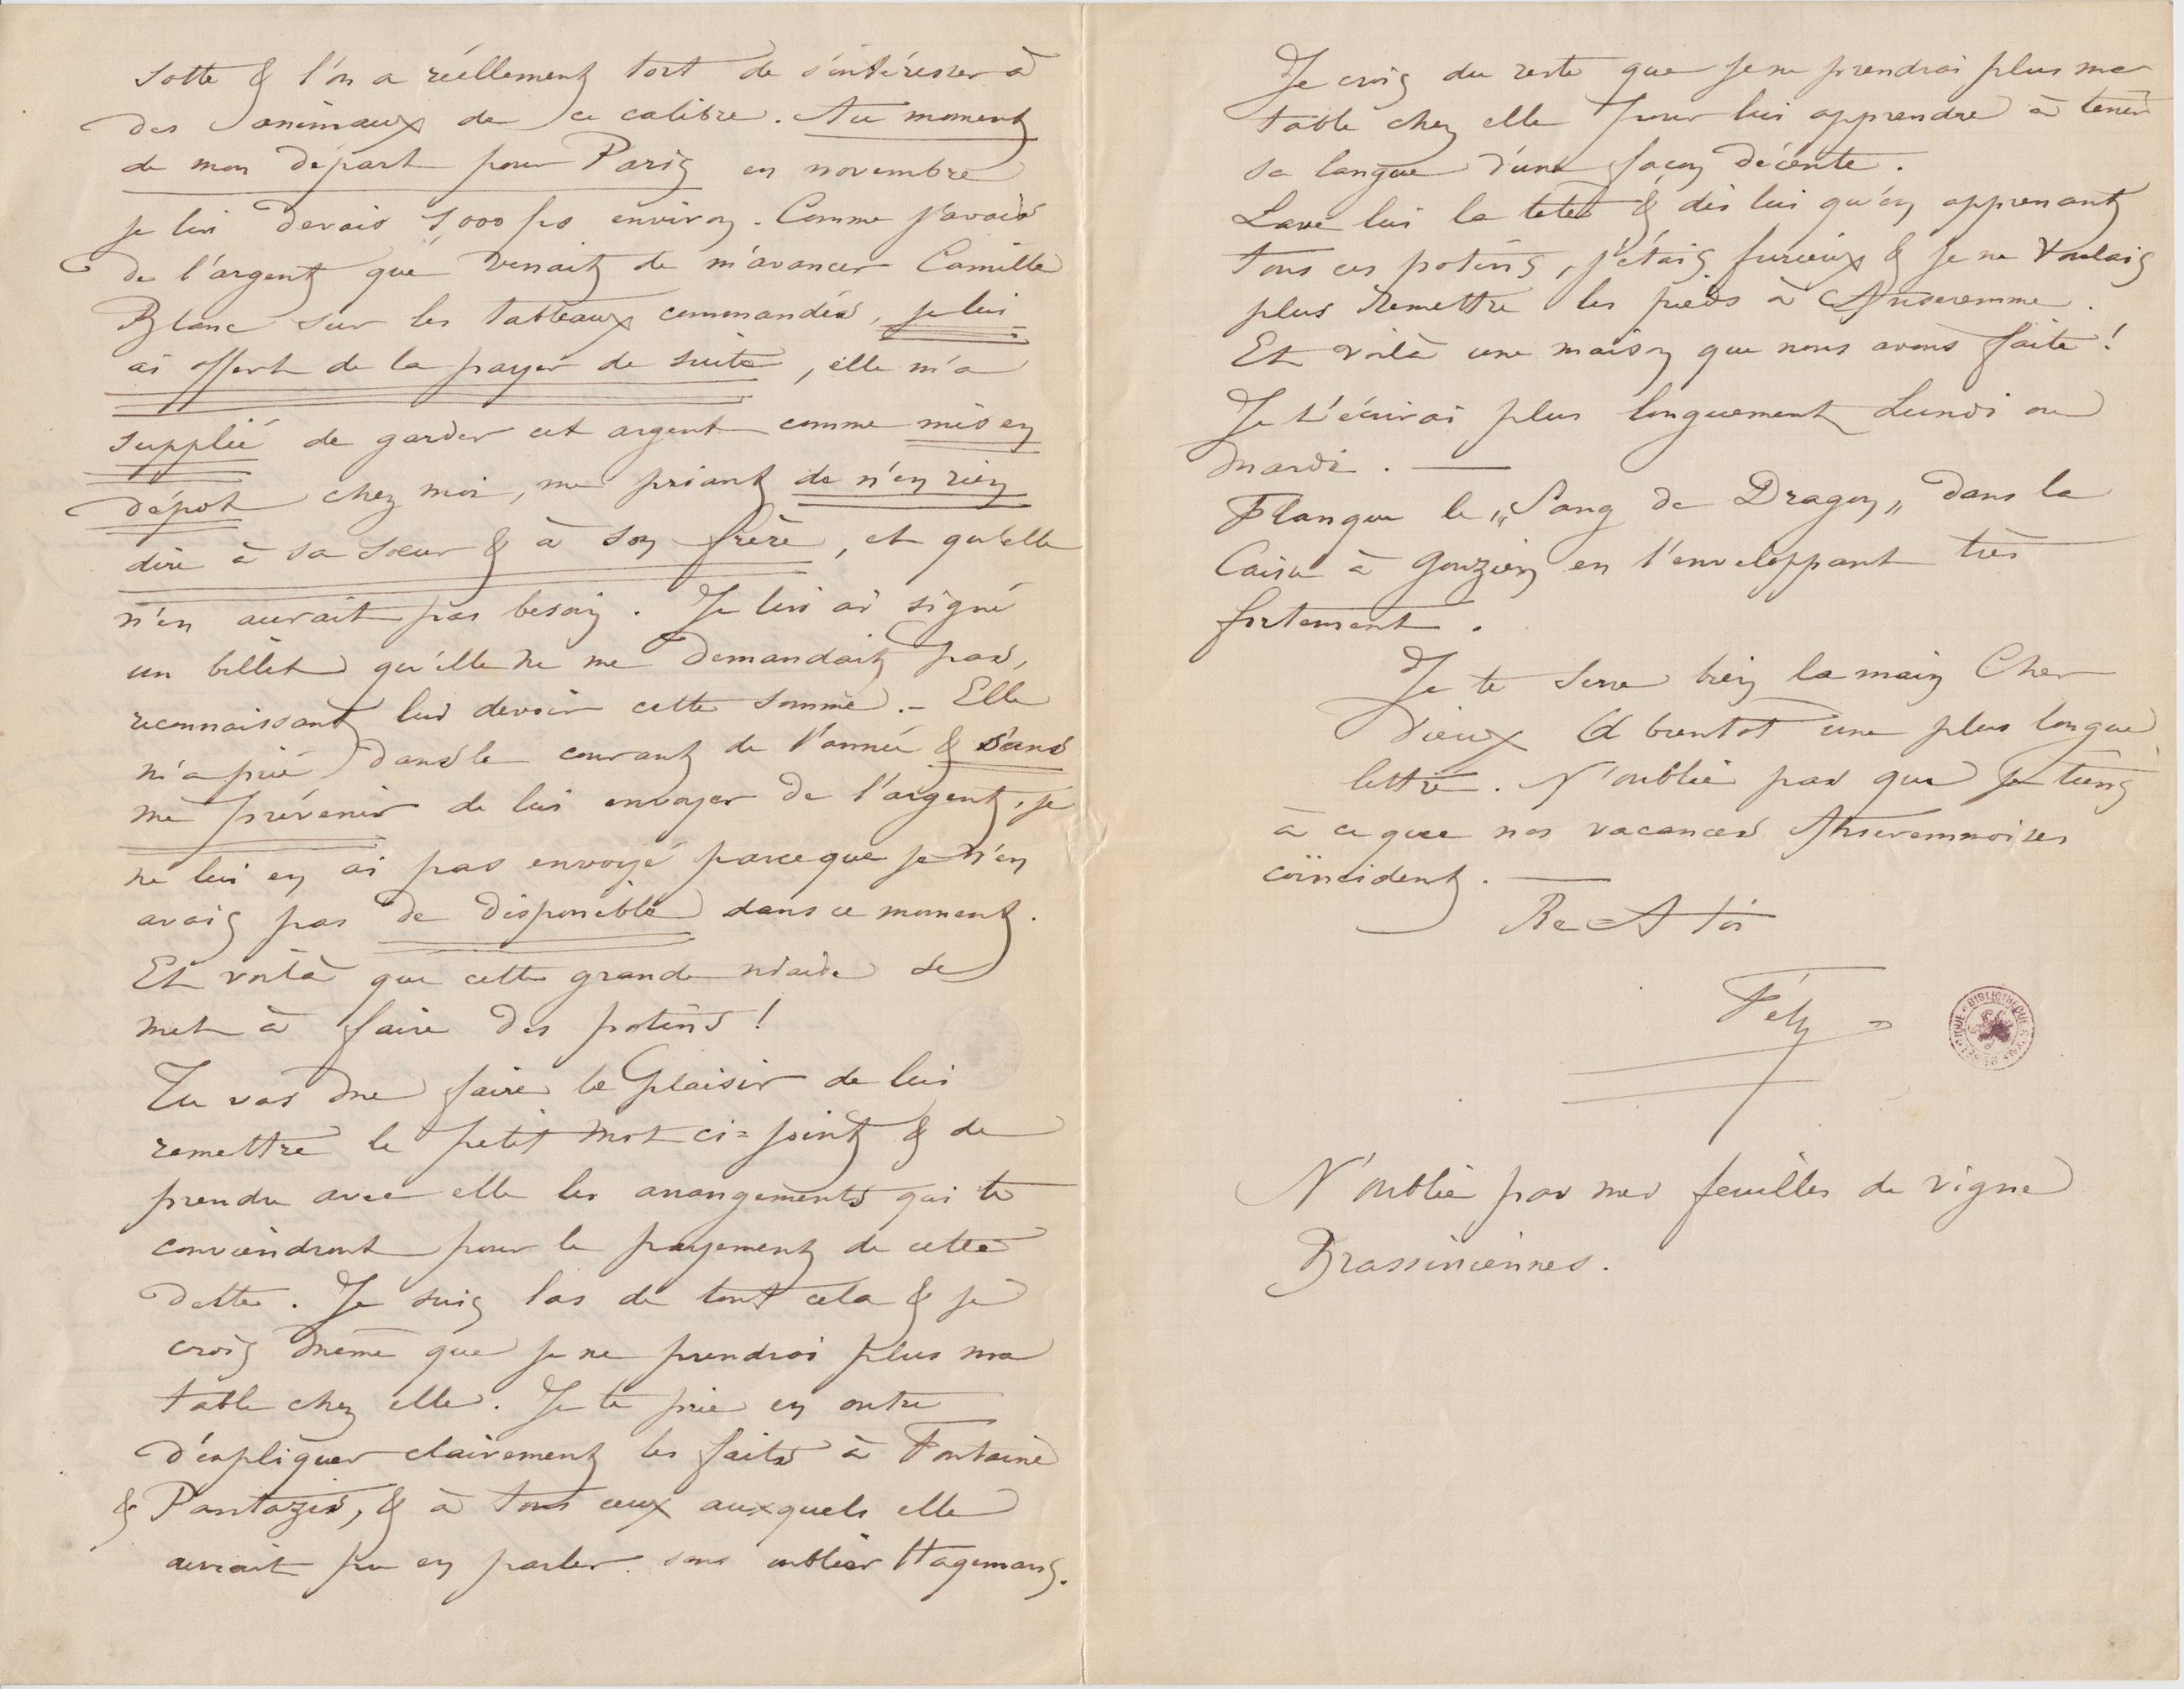 sotte & l'on a réellement tort de s'intéresser à
des animaux de ce calibre. Au moment
de mon départ pour Paris en novembre
je lui devais 1,000 frs environ. Comme j'avais
de l'argent que venait de m'avancer Camille
Blanc sur les tableaux commandés, je lui
ai offert de la payer de suite, elle m'a
supplié de garder cet argent comme mis en
dépot chez moi, me priant de n'en rien
dire à sa sœur & à son frère, et qu'elle
n'en aurait pas besoin. Je lui ai signé
un billet qu'elle ne me demandait pas,
reconnaissant lui devoir cette somme. – Elle
m'a prié dans le courant de l'année & sans
me prévenir de lui envoyer de l'argent, je
ne lui en ai pas envoyé parceque je n'en
avais pas de disponible dans ce moment.
Et voilà que cette grande niaise se
met à faire des potins !
Tu vas me faire le plaisir de lui
remettre le petit mot ci=joint & de
prendre avec elle les arrangements qui te
conviendront pour le payement de cette
dette. Je suis las de tout cela & je
crois même que je ne prendrai plus ma
table chez elle. Je te prie en outre
d'expliquer clairement les faits à Fontaine
& Pantazis, & à tous ceux auxquels elle
aurait pu en parler sans oublier Hagemans.
Je crois du reste que je ne prendrai plus ma
table chez elle pour lui apprendre à tenir
sa langue d'une façon décente.
Lave lui la tete & dis lui qu'en apprenant
tous ces potins, j'étais furieux & je ne voulais
plus remettre les pieds à Anseremme.
Et voilà une maison que nous avons faite !
Je t'écrirai plus longuement Lundi ou
Mardi. —
Flanque le „Sang de Dragon„ dans la
Caisse à Gouzien en l'enveloppant très
fortement.
Je te serre bien la main Cher
Vieux & bientot une plus longue
lettre. N'oublie pas que je tiens
à ce que nos vacances Anseremmoises
coïncident. —
Re=A toi
Fély
BIBLIOTHEQUE
N'oublie pas mes feuilles de vigne
Brassiniennes.